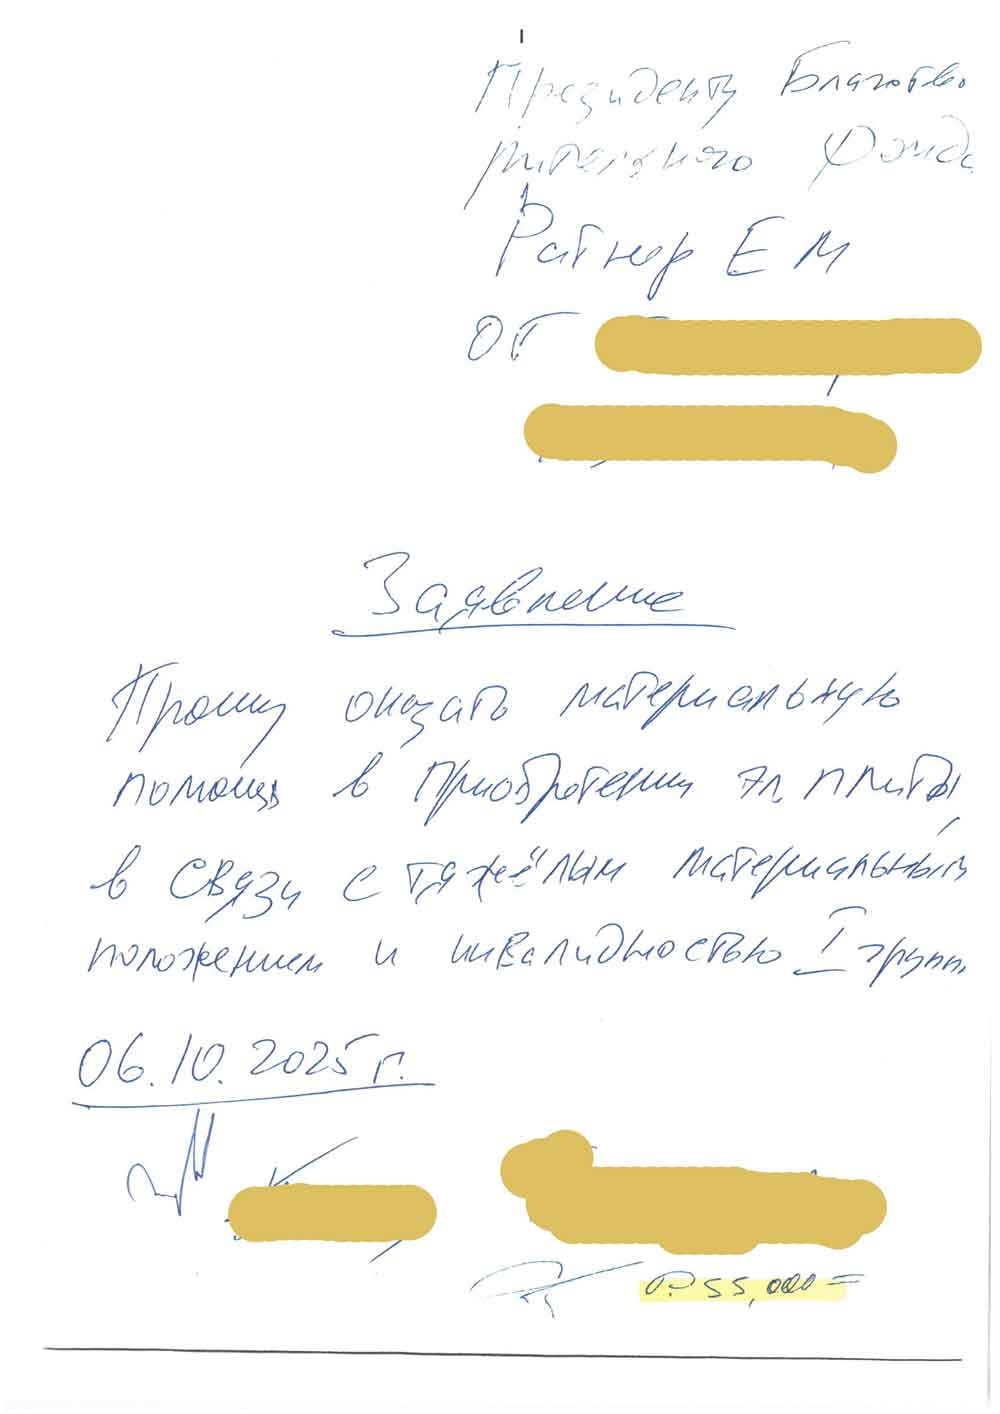 Президенту Благотво
рительного Фонда
Ратнер Е М
от
Заявление
Прошу оказать материальную
помощь в приобретении эл. плиты
в связи с тяжёлым материальным
положением и инвалидностью I групп.
06.10.2025 г.
55,000=